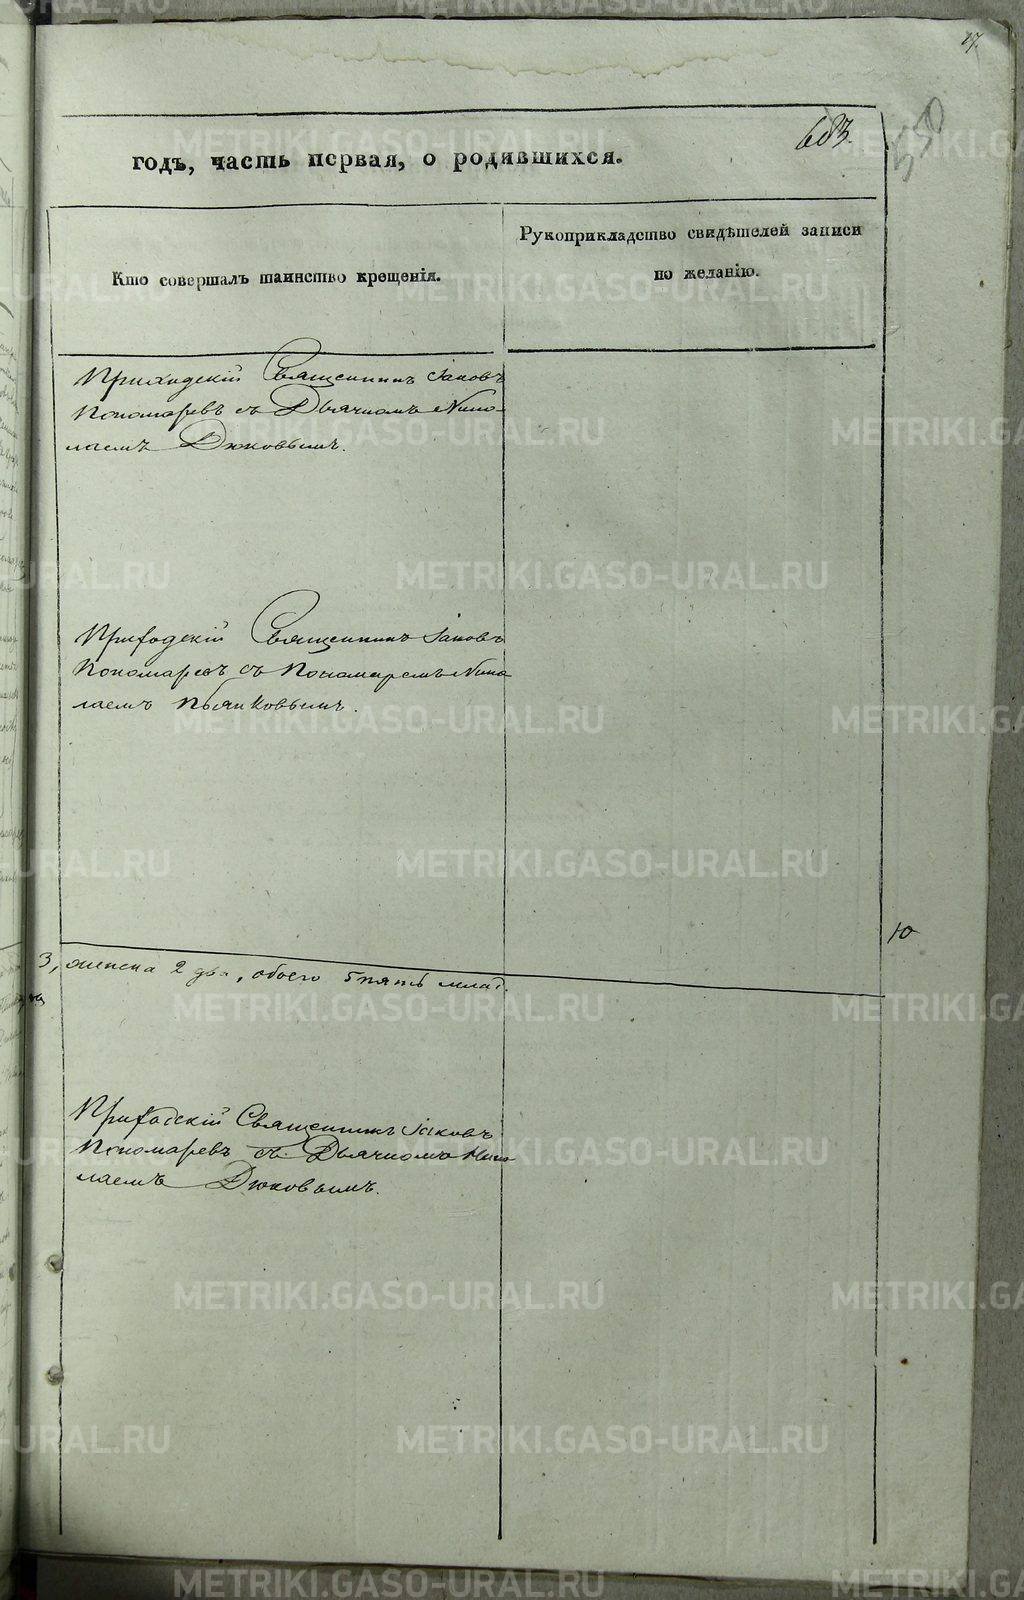 27.
683.
550
годъ, часть первая, о родившихся.
Кто совершалъ таинство крещенія.
Рукоприкладство свидѣтелей записи
по желанію.
Приходскій Священникъ Іаковъ
Пономаревъ съ Дьячкомъ Нико-
лаемъ Дюковымъ.
Приходскій Священникъ Іаковъ
Пономаревъ съ Пономаремъ Нико
лаемъ Пьянковымъ.
Ю
3, женска 2 два, обоего 5 пять млад.
Приходскій Священникъ Іаковъ
Пономаревъ съ Дьячкомъ Нико
лаемъ Дюковымъ.
METRIKI.GASO-URAL.RU